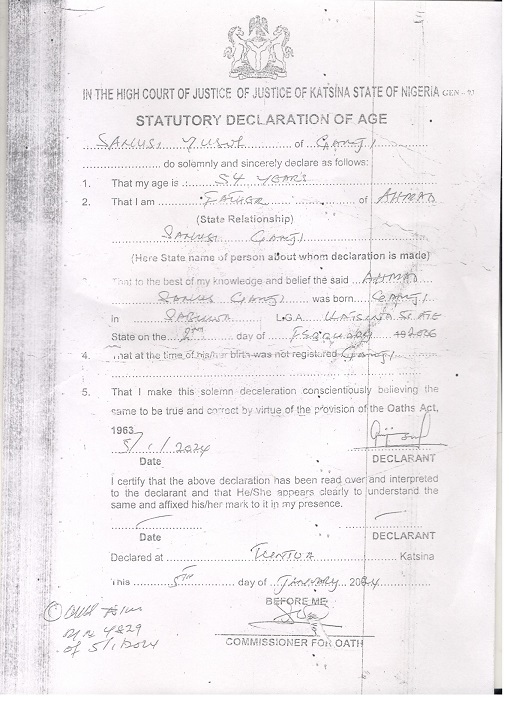 IN THE HIGH COURT OF JUSTICE OF JUSTICE OF KATSINA STATE OF NIGERIA GEN - 93
STATUTORY DECLARATION OF AGE
SANUSI YUSUF of GANJI
do solemnly and sincerely declare as follows:
1. That my age is 54 YEARS
2. That I am FATHER of AHMAD
(State Relationship)
SANUSI GANJI
(Here State name of person about whom declaration is made)
That to the best of my knowledge and belief the said AHMAD
SANUSI GANJI was born GANJI
in SABUWA L.G.A. KATSINA STATE
State on the 2ND day of FEBRUARY 19 2006
4. That at the time of his/her birth was not registered GANJI
5. That I make this solemn deceleration conscientiously believing the
same to be true and correct by virtue of the provision of the Oaths Act,
1963
5/1/2024
Date DECLARANT
I certify that the above declaration has been read over and interpreted
to the declarant and that He/She appears clearly to understand the
same and affixed his/her mark to it in my presence.
Date DECLARANT
Declared at FUNTUA Katsina
This 5TH day of JANUARY 2024
BEFORE ME
COMMISSIONER FOR OATH
4829
of 5/1/2024